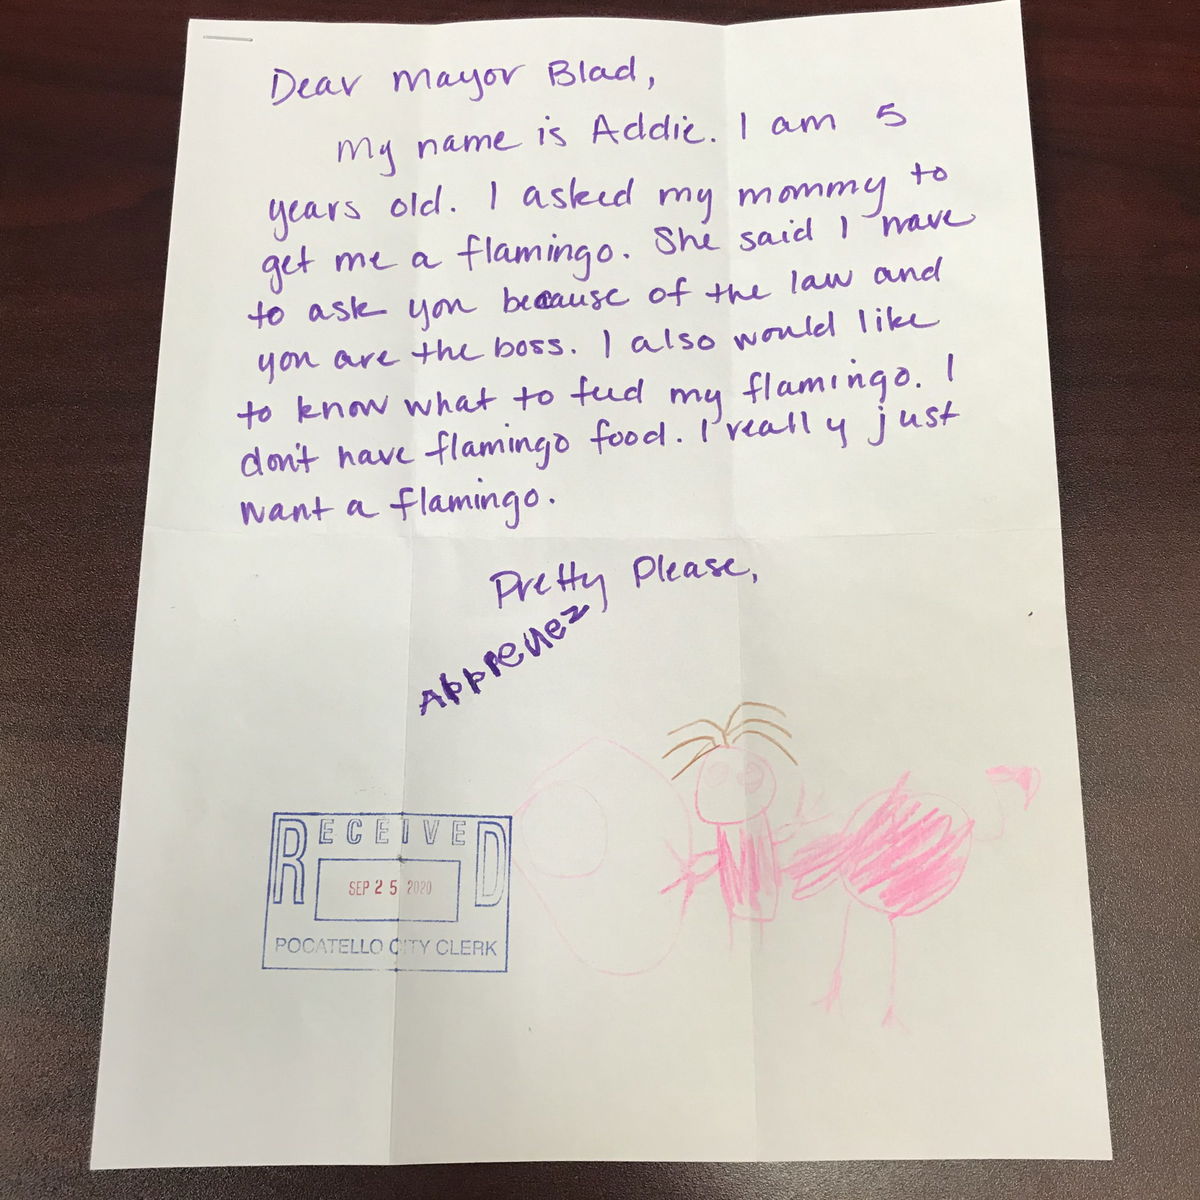 Dear Mayor Blad,
My name is Addie. I am 5
years old. I asked my mommy to
get me a flamingo. She said I have
to ask you because of the law and
you are the boss. I also would like
to know what to feed my flamingo. I
don't have flamingo food. I really just
want a flamingo.
Pretty Please,
RECEIVED
SEP 25 2020
POCATELLO CITY CLERK